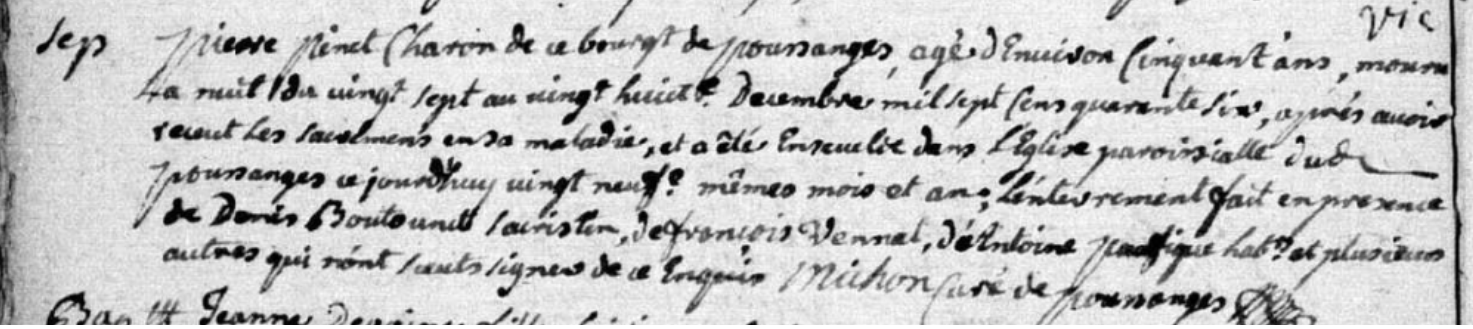 Vic
Sep pierre pinet Charon de ce bourgt de poussanges, agé d'Environ Cinquant'ans, mouru
La nuit du vingt sept au vingt huict.e Decembre mil sept Cens quarante six, après avoir
receut Les sacremens en sa maladie, et a êté Ensevelit dans L'Eglise paroissialle dud
poussanges ce jourdhuy vingt neuf.e mêmes mois et an; L'enterrement fait en presence
de Denis sacristin, de françois Vennat, d'Antoine habts et plusieurs
autres qui n'ont sceuts signer de ce Enquis Michon Curé de poussanges
Jeanne